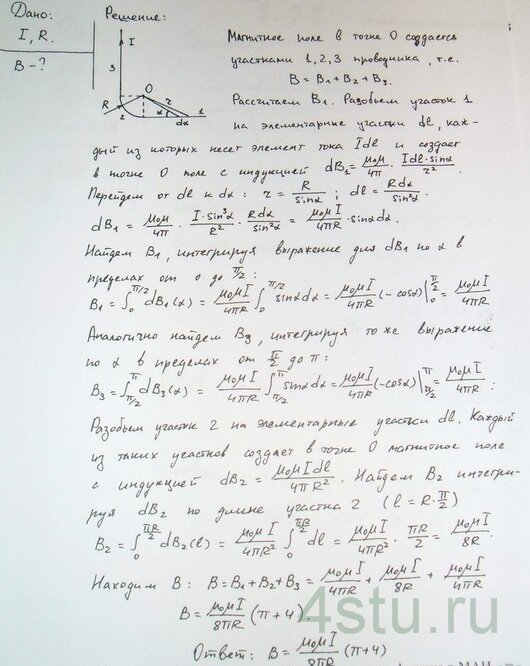 Дано:
I, R.
B - ?
Решение:
I
3
O
R
r
2
α
dα
1
Магнитное поле в точке O создается
участками 1, 2, 3 проводника, т.е.
B = B₁ + B₂ + B₃.
Рассчитаем B₁. Разобьем участок 1
на элементарные участки dl, каж-
дый из которых несет элемент тока Idl и создает
в точке O поле с индукцией dB₁ = μ₀μ/4π · Idl·sinα/r².
Перейдем от dl к dα: r = R/sinα ; dl = Rdα/sin²α.
dB₁ = μ₀μ/4π · I·sin²α/R² · Rdα/sin²α = μ₀μI/4πR · sinαdα.
Найдем B₁, интегрируя выражение для dB₁ по α в
пределах от 0 до π/2:
B₁ = ∫₀^(π/2) dB₁(α) = μ₀μI/4πR ∫₀^(π/2) sinαdα = μ₀μI/4πR (-cosα)|₀^(π/2) = μ₀μI/4πR
Аналогично найдем B₃, интегрируя то же выражение
по α в пределах от π/2 до π:
B₃ = ∫_(π/2)^π dB₃(α) = μ₀μI/4πR ∫_(π/2)^π sinαdα = μ₀μI/4πR (-cosα)|_(π/2)^π = μ₀μI/4πR :
Разобьем участок 2 на элементарные участки dl. Каждый
из таких участков создает в точке O магнитное поле
с индукцией dB₂ = μ₀μIdl/4πR². Найдем B₂ интегри-
руя dB₂ по длине участка 2 (l = R·π/2)
B₂ = ∫₀^(πR/2) dB₂(l) = μ₀μI/4πR² ∫₀^(πR/2) dl = μ₀μI/4πR² · πR/2 = μ₀μI/8R.
Находим B: B = B₁ + B₂ + B₃ = μ₀μI/4πR + μ₀μI/8R + μ₀μI/4πR
B = μ₀μI/8πR (π+4)
4stu.ru
Ответ: B = μ₀μI/8πR (π+4)